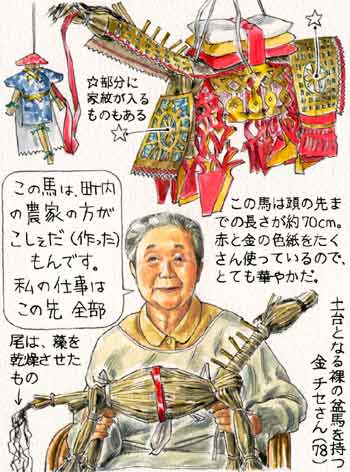 ☆部分に
家紋が入る
ものもある
この馬は、町内
の農家の方が
こしぇだ(作った)
もんです。
私の仕事は
この先 全部
この馬は頭の先ま
での長さが約70cm。
赤と金の色紙をたく
さん使っているので、
とても華やかだ。
尾は、藁を
乾燥させた
もの
土台となる裸の盆馬を持つ
金 チセさん(78)